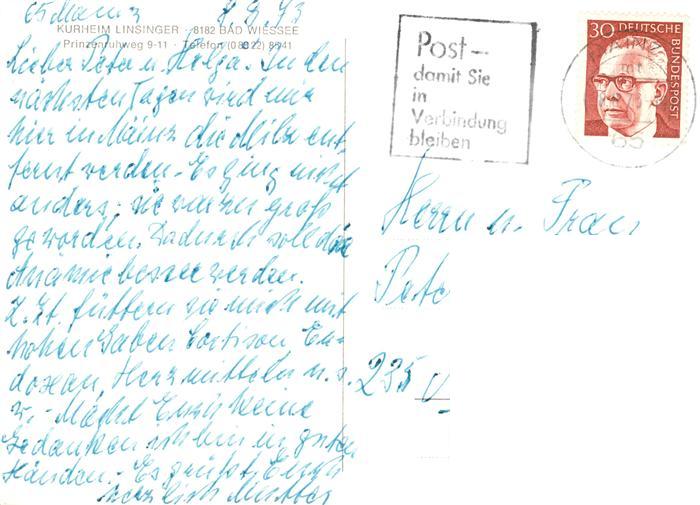 65 Mainz 8.9.73
KURHEIM LINSINGER · 8182 BAD WIESSEE
Prinzenruhweg 9-11 · Telefon (0 80 22) 8541
Lieber Peter u. Helga. In den
nächsten Tagen wird mir
hier in Mainz die Milz ent
fernt werden. Es ging nicht
anders, sie war zu groß
geworden. Dadurch soll die
Anämie besser werden.
Z. Zt. füttern sie mich mit
hohen Gaben Cortison En-
doxan, Herzmitteln u.s.
w. - Macht Euch keine
Gedanken ich bin in guten
Händen. - Es grüßt Euch
herzlich Mutter
Post -
damit Sie
in
Verbindung
bleiben
30 DEUTSCHE
BUNDESPOST
65
Herrn u. Frau
Pete
235